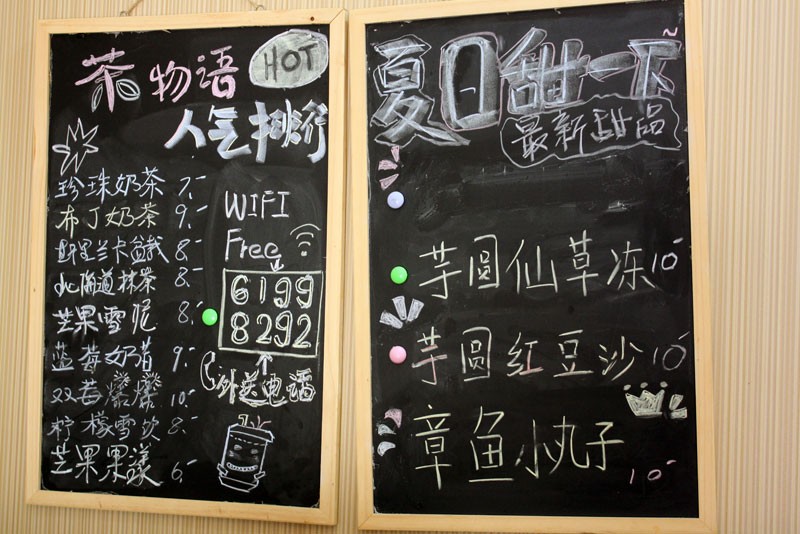 茶物语 HOT
人气排行
珍珠奶茶 7.-
布丁奶茶 9.-
野里兰卡盆栽 8.-
北海道抹茶 8.-
芒果雪泥 8.-
蓝莓奶昔 9.-
双莓爆爆 10.-
柠檬雪饮 8.-
芒果果漾 6.-
WIFI
Free
6199
8292
外送电话
夏日甜一下~
最新甜品
芋圆仙草冻 10-
芋圆红豆沙 10-
章鱼小丸子 10.-